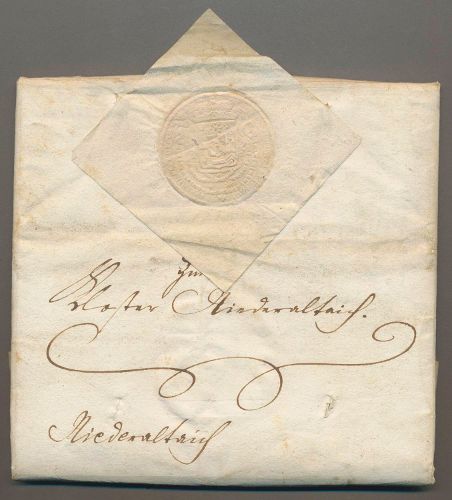 Zum
Kloster Niederaltaich.
Niederaltaich